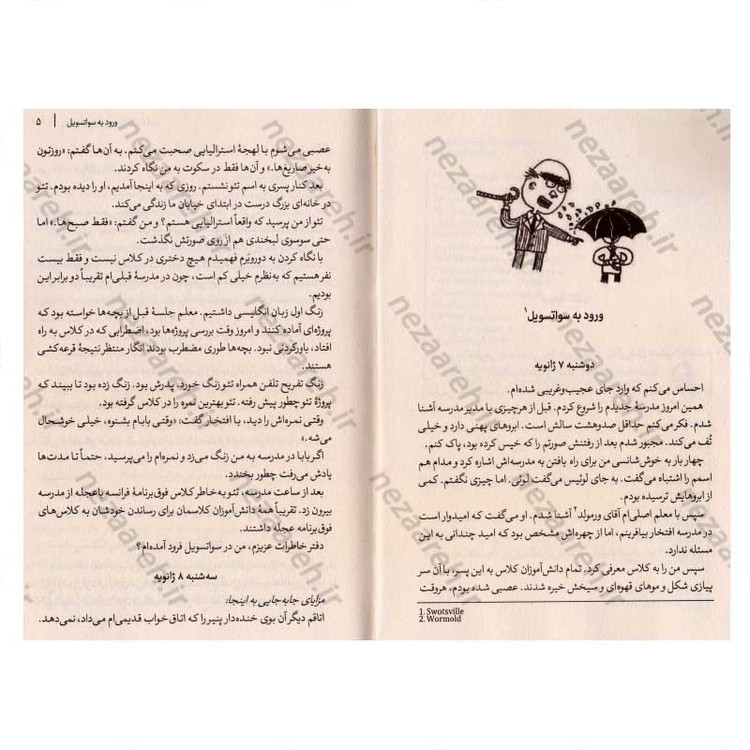 ورود به سواتسویل۱
دوشنبه ۷ ژانویه
احساس می‌کنم که وارد جای عجیب‌وغریبی شده‌ام.
همین امروز مدرسهٔ جدیدم را شروع کردم. قبل از هرچیزی با مدیر مدرسه آشنا
شدم. فکر می‌کنم حداقل صدوهشت سالش است. ابروهای پهنی دارد و خیلی
تُف می‌کند. مجبور شدم بعد از رفتنش صورتم را که خیس کرده بود، پاک کنم.
چهار بار به خوش‌شانسی من برای راه یافتن به مدرسه‌اش اشاره کرد و مدام هم
اسمم را اشتباه می‌گفت. به جای لوئیس می‌گفت لوئی. اما چیزی نگفتم. کمی
از ابروهایش ترسیده بودم.
سپس با معلم اصلی‌ام آقای ورمولد۲ آشنا شدم. او می‌گفت که امیدوار است
در مدرسه افتخار بیافرینم، اما از چهره‌اش مشخص بود که امید چندانی به این
مسئله ندارد.
سپس من را به کلاس معرفی کرد. تمام دانش‌آموزان کلاس به این پسر، با آن سر
پیازی شکل و موهای قهوه‌ای و سیخش خیره شدند. عصبی شده بودم، هروقت
1. Swotsville
2. Wormold
ورود به سواتسویل | ۵
عصبی می‌شوم با لهجهٔ استرالیایی صحبت می‌کنم. به آن‌ها گفتم: «روزتون
به‌خیر صاریغ‌ها.» و آن‌ها فقط در سکوت به من نگاه کردند.
بعد کنار پسری به اسم تئو نشستم. روزی که به اینجا آمدیم، او را دیده بودم. تئو
در خانه‌ای بزرگ درست در ابتدای خیابان ما زندگی می‌کند.
تئو از من پرسید که واقعاً استرالیایی هستم؟ و من گفتم: «فقط صبح‌ها.» اما
حتی سوسوی لبخندی هم از روی صورتش نگذشت.
با نگاه کردن به دوروبَرم فهمیدم هیچ دختری در کلاس نیست و فقط بیست
نفر هستیم که به‌نظرم خیلی کم است، چون در مدرسهٔ قبلی‌ام تقریباً دو برابر این
بودیم.
زنگ اول زبان انگلیسی داشتیم. معلم جلسهٔ قبل از بچه‌ها خواسته بود که
پروژه‌ای آماده کنند و امروز وقت بررسی پروژه‌ها بود، اضطرابی که در کلاس به راه
افتاد، باورکردنی نبود. بچه‌ها طوری مضطرب بودند انگار منتظر نتیجهٔ قرعه‌کشی
هستند.
زنگ تفریح تلفن همراه تئو زنگ خورد، پدرش بود. زنگ زده بود تا ببیند که
پروژهٔ تئو چطور پیش رفته. تئو بهترین نمره را در کلاس گرفته بود.
وقتی نمره‌اش را دید، با افتخار گفت: «وقتی بابام بشنوه، خیلی خوشحال
می‌شه.»
اگر بابا در مدرسه به من زنگ می‌زد و نمره‌ام را می‌پرسید، حتماً تا مدت‌ها
یادش می‌رفت چطور بخندد.
بعد از ساعت مدرسه، تئو به خاطر کلاس فوق‌برنامهٔ فرانسه باعجله از مدرسه
بیرون زد. تقریباً همهٔ دانش‌آموزان کلاسمان برای رساندن خودشان به کلاس‌های
فوق‌برنامه عجله داشتند.
دفتر خاطرات عزیزم، من در سواتسویل فرود آمده‌ام؟
سه‌شنبه ۸ ژانویه
مزایای جابه‌جایی به اینجا:
اتاقم دیگر آن بوی خنده‌دار پنیر را که اتاق خواب قدیمی‌ام می‌داد، نمی‌دهد.
nezaareh.ir